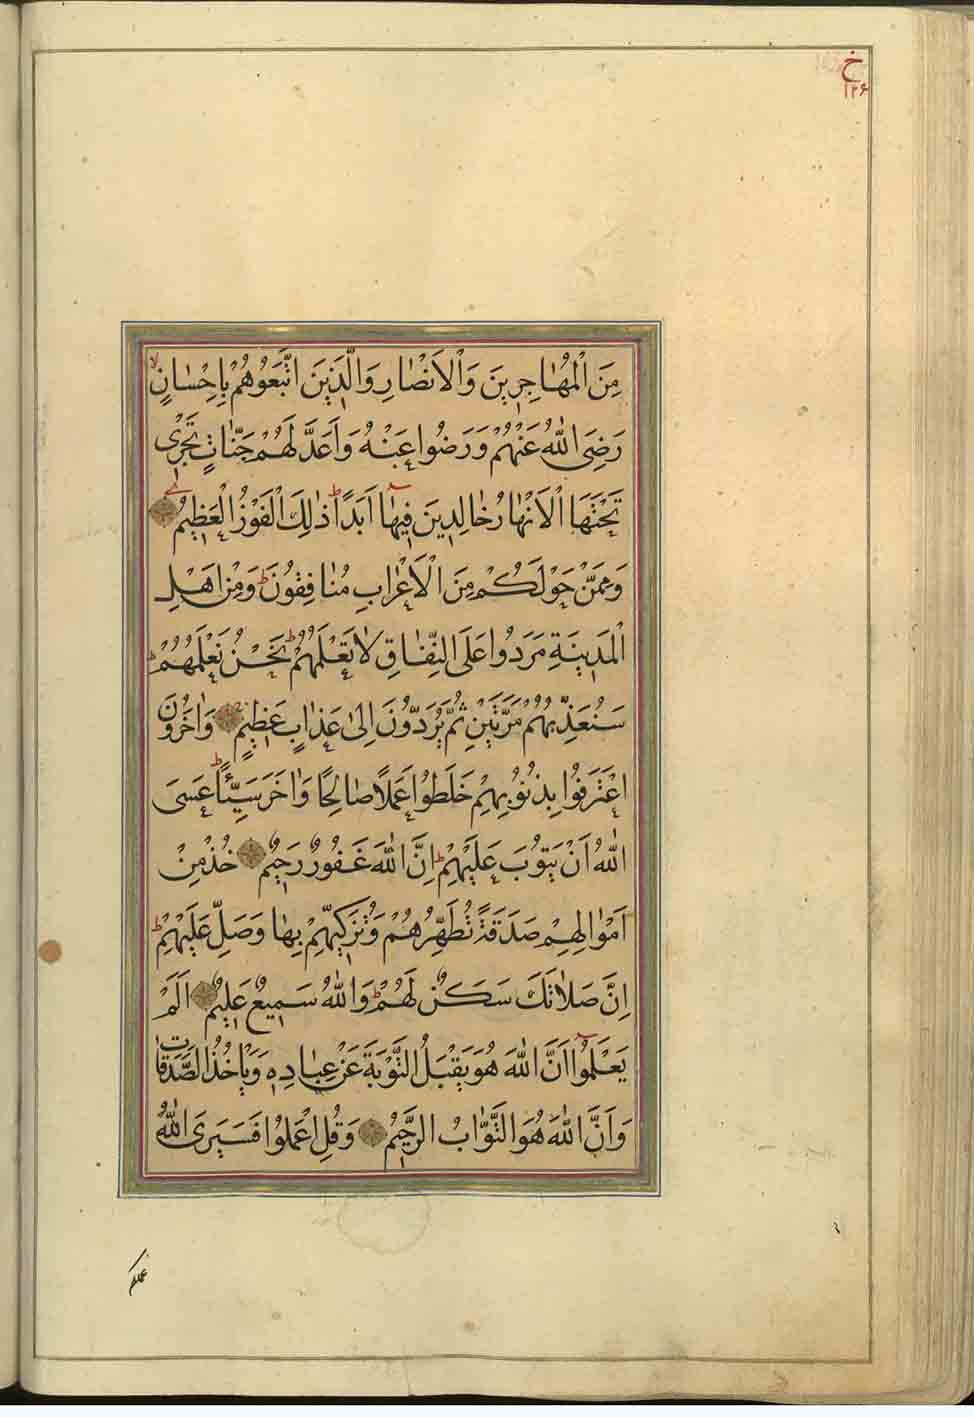 خ
۱۲۶
مِنَ الْمُهَاجِرِينَ وَالْاَنْصَارِ وَالَّذِينَ اتَّبَعُوهُمْ بِاِحْسَانٍ
رَضِىَ اللّٰهُ عَنْهُمْ وَرَضُوا عَنْهُ وَاَعَدَّ لَهُمْ جَنَّاتٍ تَجْرِى
تَحْتَهَا الْاَنْهَارُ خَالِدِينَ فِيهَا اَبَدًا ذٰلِكَ الْفَوْزُ الْعَظِيمُ
وَمِمَّنْ حَوْلَكُمْ مِنَ الْاَعْرَابِ مُنَافِقُونَ وَمِنْ اَهْلِ
الْمَدِينَةِ مَرَدُوا عَلَى النِّفَاقِ لَا تَعْلَمُهُمْ نَحْنُ نَعْلَمُهُمْ
سَنُعَذِّبُهُمْ مَرَّتَيْنِ ثُمَّ يُرَدُّونَ اِلىٰ عَذَابٍ عَظِيمٍ وَاٰخَرُونَ
اعْتَرَفُوا بِذُنُوبِهِمْ خَلَطُوا عَمَلًا صَالِحًا وَاٰخَرَ سَيِّئًا عَسَى
اللّٰهُ اَنْ يَتُوبَ عَلَيْهِمْ اِنَّ اللّٰهَ غَفُورٌ رَحِيمٌ خُذْ مِنْ
اَمْوَالِهِمْ صَدَقَةً تُطَهِّرُهُمْ وَتُزَكِّيهِمْ بِهَا وَصَلِّ عَلَيْهِمْ
اِنَّ صَلَاتَكَ سَكَنٌ لَهُمْ وَاللّٰهُ سَمِيعٌ عَلِيمٌ اَلَمْ
يَعْلَمُوا اَنَّ اللّٰهَ هُوَ يَقْبَلُ التَّوْبَةَ عَنْ عِبَادِهِ وَيَاْخُذُ الصَّدَقَاتِ
وَاَنَّ اللّٰهَ هُوَ التَّوَّابُ الرَّحِيمُ وَقُلِ اعْمَلُوا فَسَيَرَى اللّٰهُ
عملكم